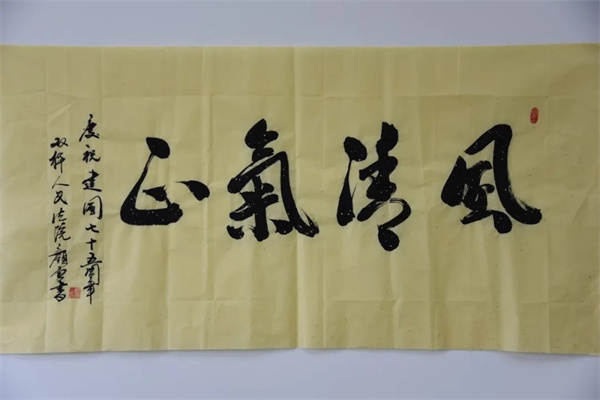 風清氣正
慶祝建国七十五周年
双桥人民法院颜書